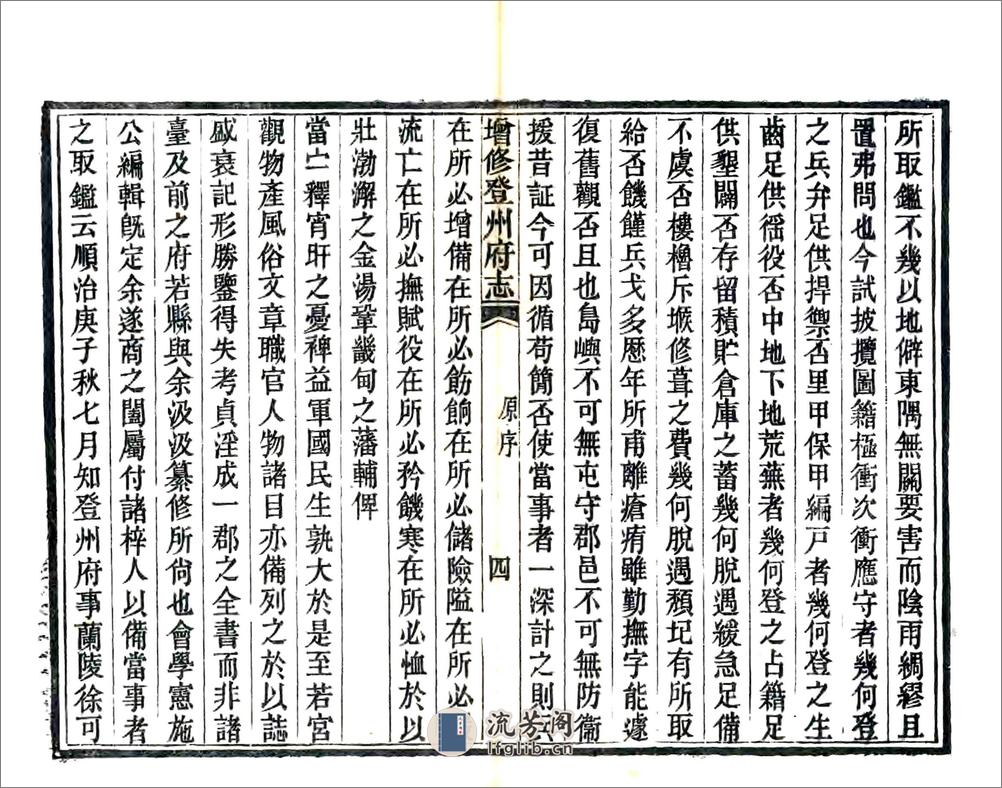 所取鑑不幾以地僻東隅無關要害而陰雨綢繆且
置弗問也今試披攬圖籍極衝次衝應守者幾何登
之兵弁足供捍禦否里甲保甲編戸者幾何登之生
齒足供徭役否中地下地荒蕪者幾何登之占籍足
供墾闢否存留積貯倉庫之蓄幾何脫遇緩急足備
不虞否樓櫓斥堠修葺之費幾何脫遇頹圮有所取
給否饑饉兵戈多歷年所甫離瘡痏雖勤撫字能遽
復舊觀否且也島嶼不可無屯守郡邑不可無防衞
援昔証今可因循苟簡否使當事者一深計之則
增修登州府志
原序
四
在所必增備在所必飭餉在所必儲險隘在所必
流亡在所必撫賦役在所必矜饑寒在所必恤於以
壯渤澥之金湯鞏畿甸之藩輔俾
當宁釋宵旰之憂裨益軍國民生孰大於是至若宮
觀物產風俗文章職官人物諸目亦備列之於以誌
盛衰記形勝鑒得失考貞淫成一郡之全書而非諸
臺及前之府若縣與余汲汲纂修所尚也會學憲施
公編輯旣定余遂商之闔屬付諸梓人以備當事者
之取鑑云順治庚子秋七月知登州府事蘭陵徐可
流芳阁
lfglib.cn